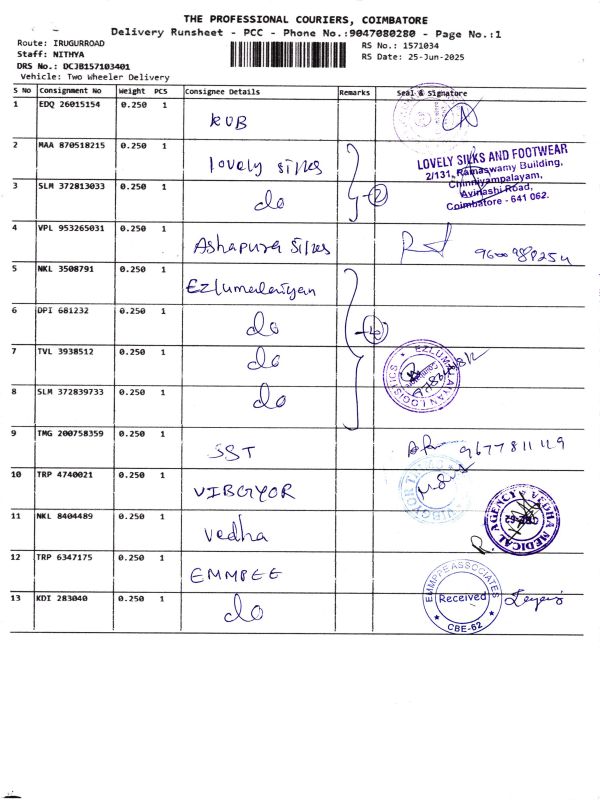 THE PROFESSIONAL COURIERS, COIMBATORE
Delivery Runsheet - PCC - Phone No.:9047080280 - Page No.:1
Route: IRUGURROAD
Staff: NITHYA
DRS No.: DCJB157103401
Vehicle: Two Wheeler Delivery
RS No.: 1571034
RS Date: 25-Jun-2025
S No Consignment No Weight PCS Consignee Details Remarks Seal & Signature
1 EDQ 26015154 0.250 1 KVB
2 MAA 870518215 0.250 1 lovely silks
3 SLM 372813033 0.250 1 do
2
LOVELY SILKS AND FOOTWEAR
2/131, Ramaswamy Building,
Chinniyampalayam,
Avinashi Road,
Coimbatore - 641 062.
4 VPL 953265031 0.250 1 Ashapura silks
5 NKL 3508791 0.250 1 Ezlumalaiyan
6 DPI 681232 0.250 1 do
7 TVL 3938512 0.250 1 do
8 SLM 372839733 0.250 1 do
EZLUMALAIYAN LOGISTICS
9 TMG 200758359 0.250 1 SST 9677811129
10 TRP 4740021 0.250 1 VIBGYOR
11 NKL 8404489 0.250 1 Vedha
VEDHA MEDICAL AGENCY
12 TRP 6347175 0.250 1 EMMPEE
13 KDI 283040 0.250 1 do
EMMPEE ASSOCIATES
Received
CBE-62